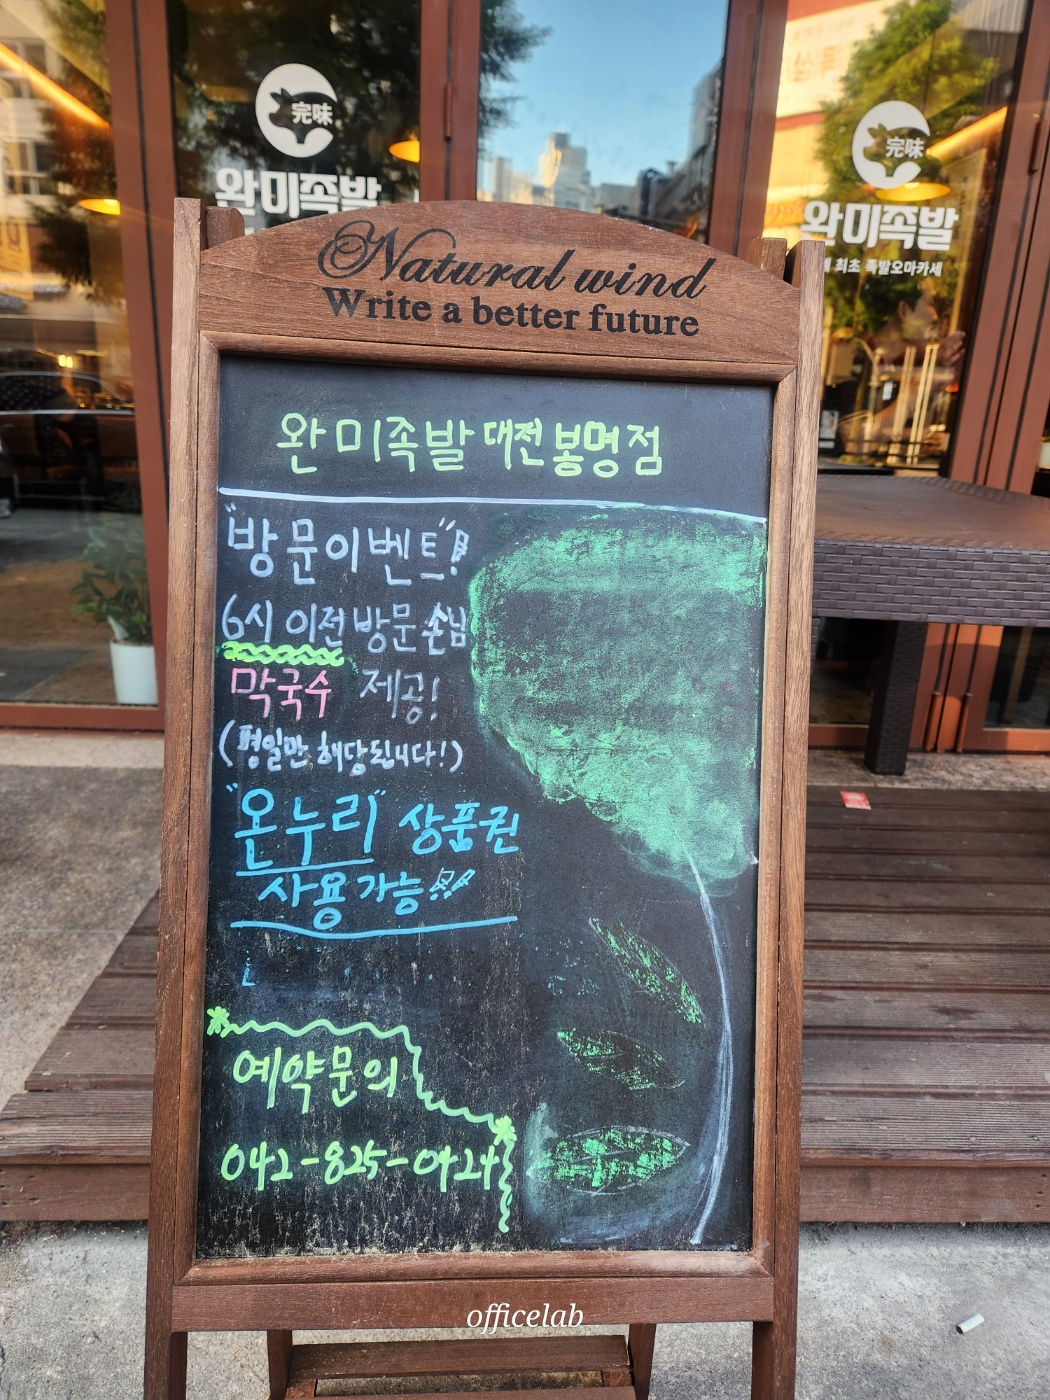 完味
완미족발
完味
완미족발
최초 족발오마카세
Natural wind
Write a better future
완미족발 대전 봉명점
"방문이벤트"!
6시 이전 방문 손님
막국수 제공!
(평일만 해당됩니다!)
"온누리" 상품권
사용가능!!
예약문의
042-825-0424
officelab